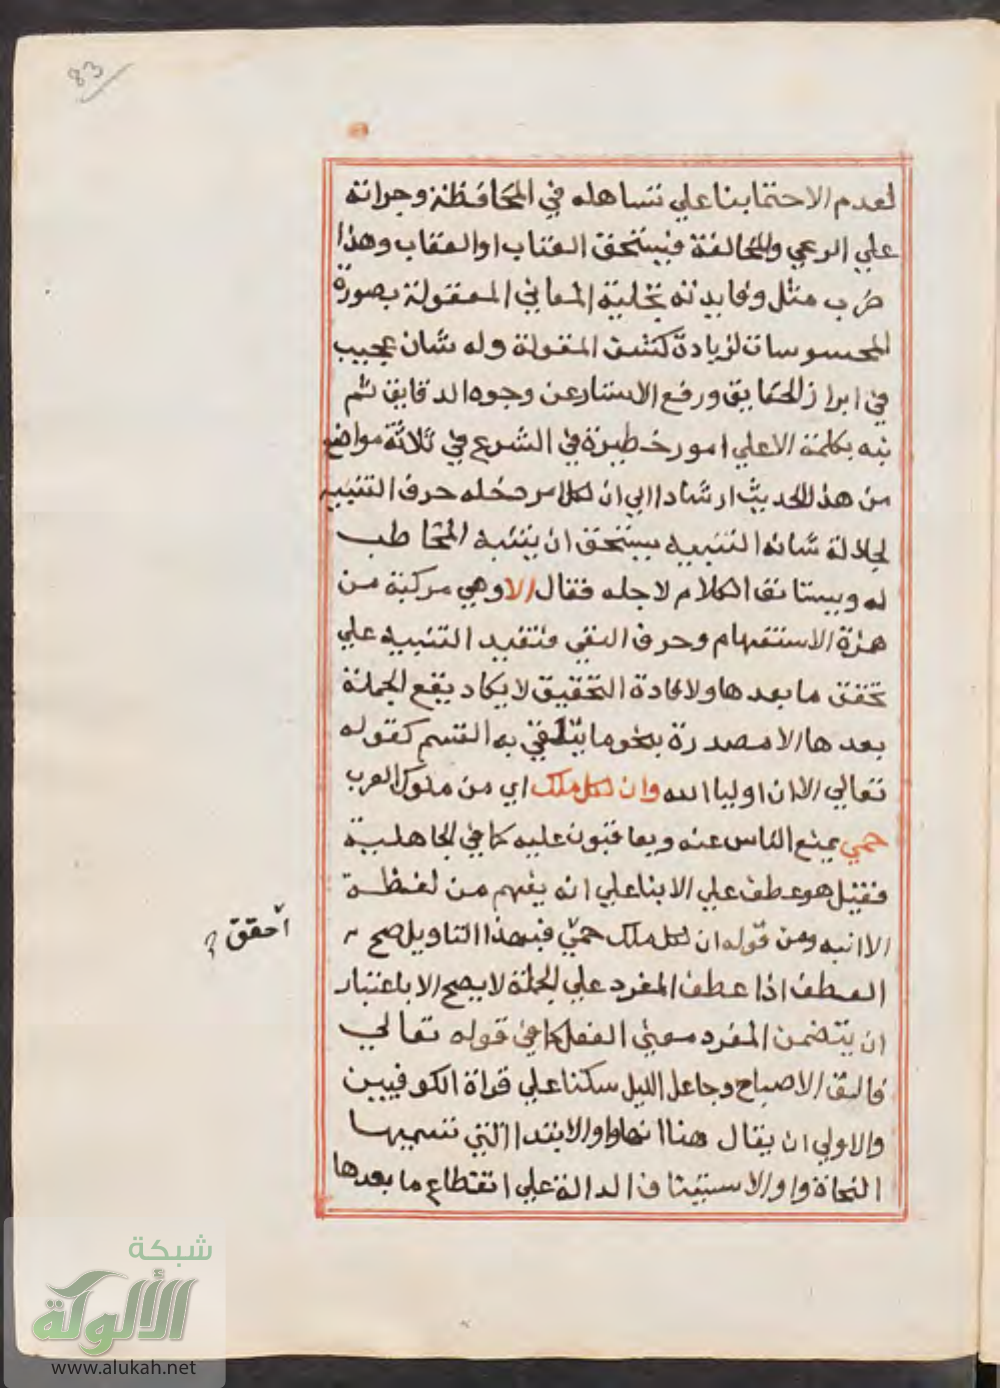 83
لعدم الاحتما بنا علي تساهله في المحافظة وجراته
علي الرعي والمخالفة فيستحق العتاب او العقاب وهذا
ضرب مثل وفايدته تجلية المعاني المعقولة بصورة
المحسوسات لزيادة كشف المقولة وله شان عجيب
في ابراز الحقايق ورفع الاستار عن وجوه الدقايق ثم
نبه بكلمة الا علي امور خطيرة في الشرع في ثلاثة مواضع
من هذا الحديث ارشادا الي ان كل امر دخله حرف التنبيه
لجلالة شانه التنبيه يستحق ان يتنبه المخاطب
له ويستانف الكلام لاجله فقال الا وهي مركبة من
همزة الاستفهام وحرف النفي فتفيد التنبيه علي
تحقق ما بعدها ولافادة التحقيق لا يكاد يقع الجملة
بعدها الا مصدرة بنحو ما يتلقي به القسم كقوله
تعالي الا ان اوليا الله وان لكل ملك اي من ملوك العرب
حمي يمنع الناس عنه ويعاقبون عليه كما في الجاهلية
فقيل هو عطف علي الا بنا علي انه يفهم من لفظة
الا انبه ومن قوله ان لكل ملك حمي فبهذا التاويل صح
أحقق
العطف اذا عطف المفرد علي الجملة لا يصح الا باعتبار
ان يتضمن المفرد معني الفعل كما في قوله تعالي
فالق الاصباح وجاعل الليل سكنا علي قراة الكوفيين
والاولي ان يقال هنا انها واو الابتدا التي تسميها
النحاة واو الاستيناف الدالة علي انقطاع ما بعدها
شبكة
الألوكة
www.alukah.net